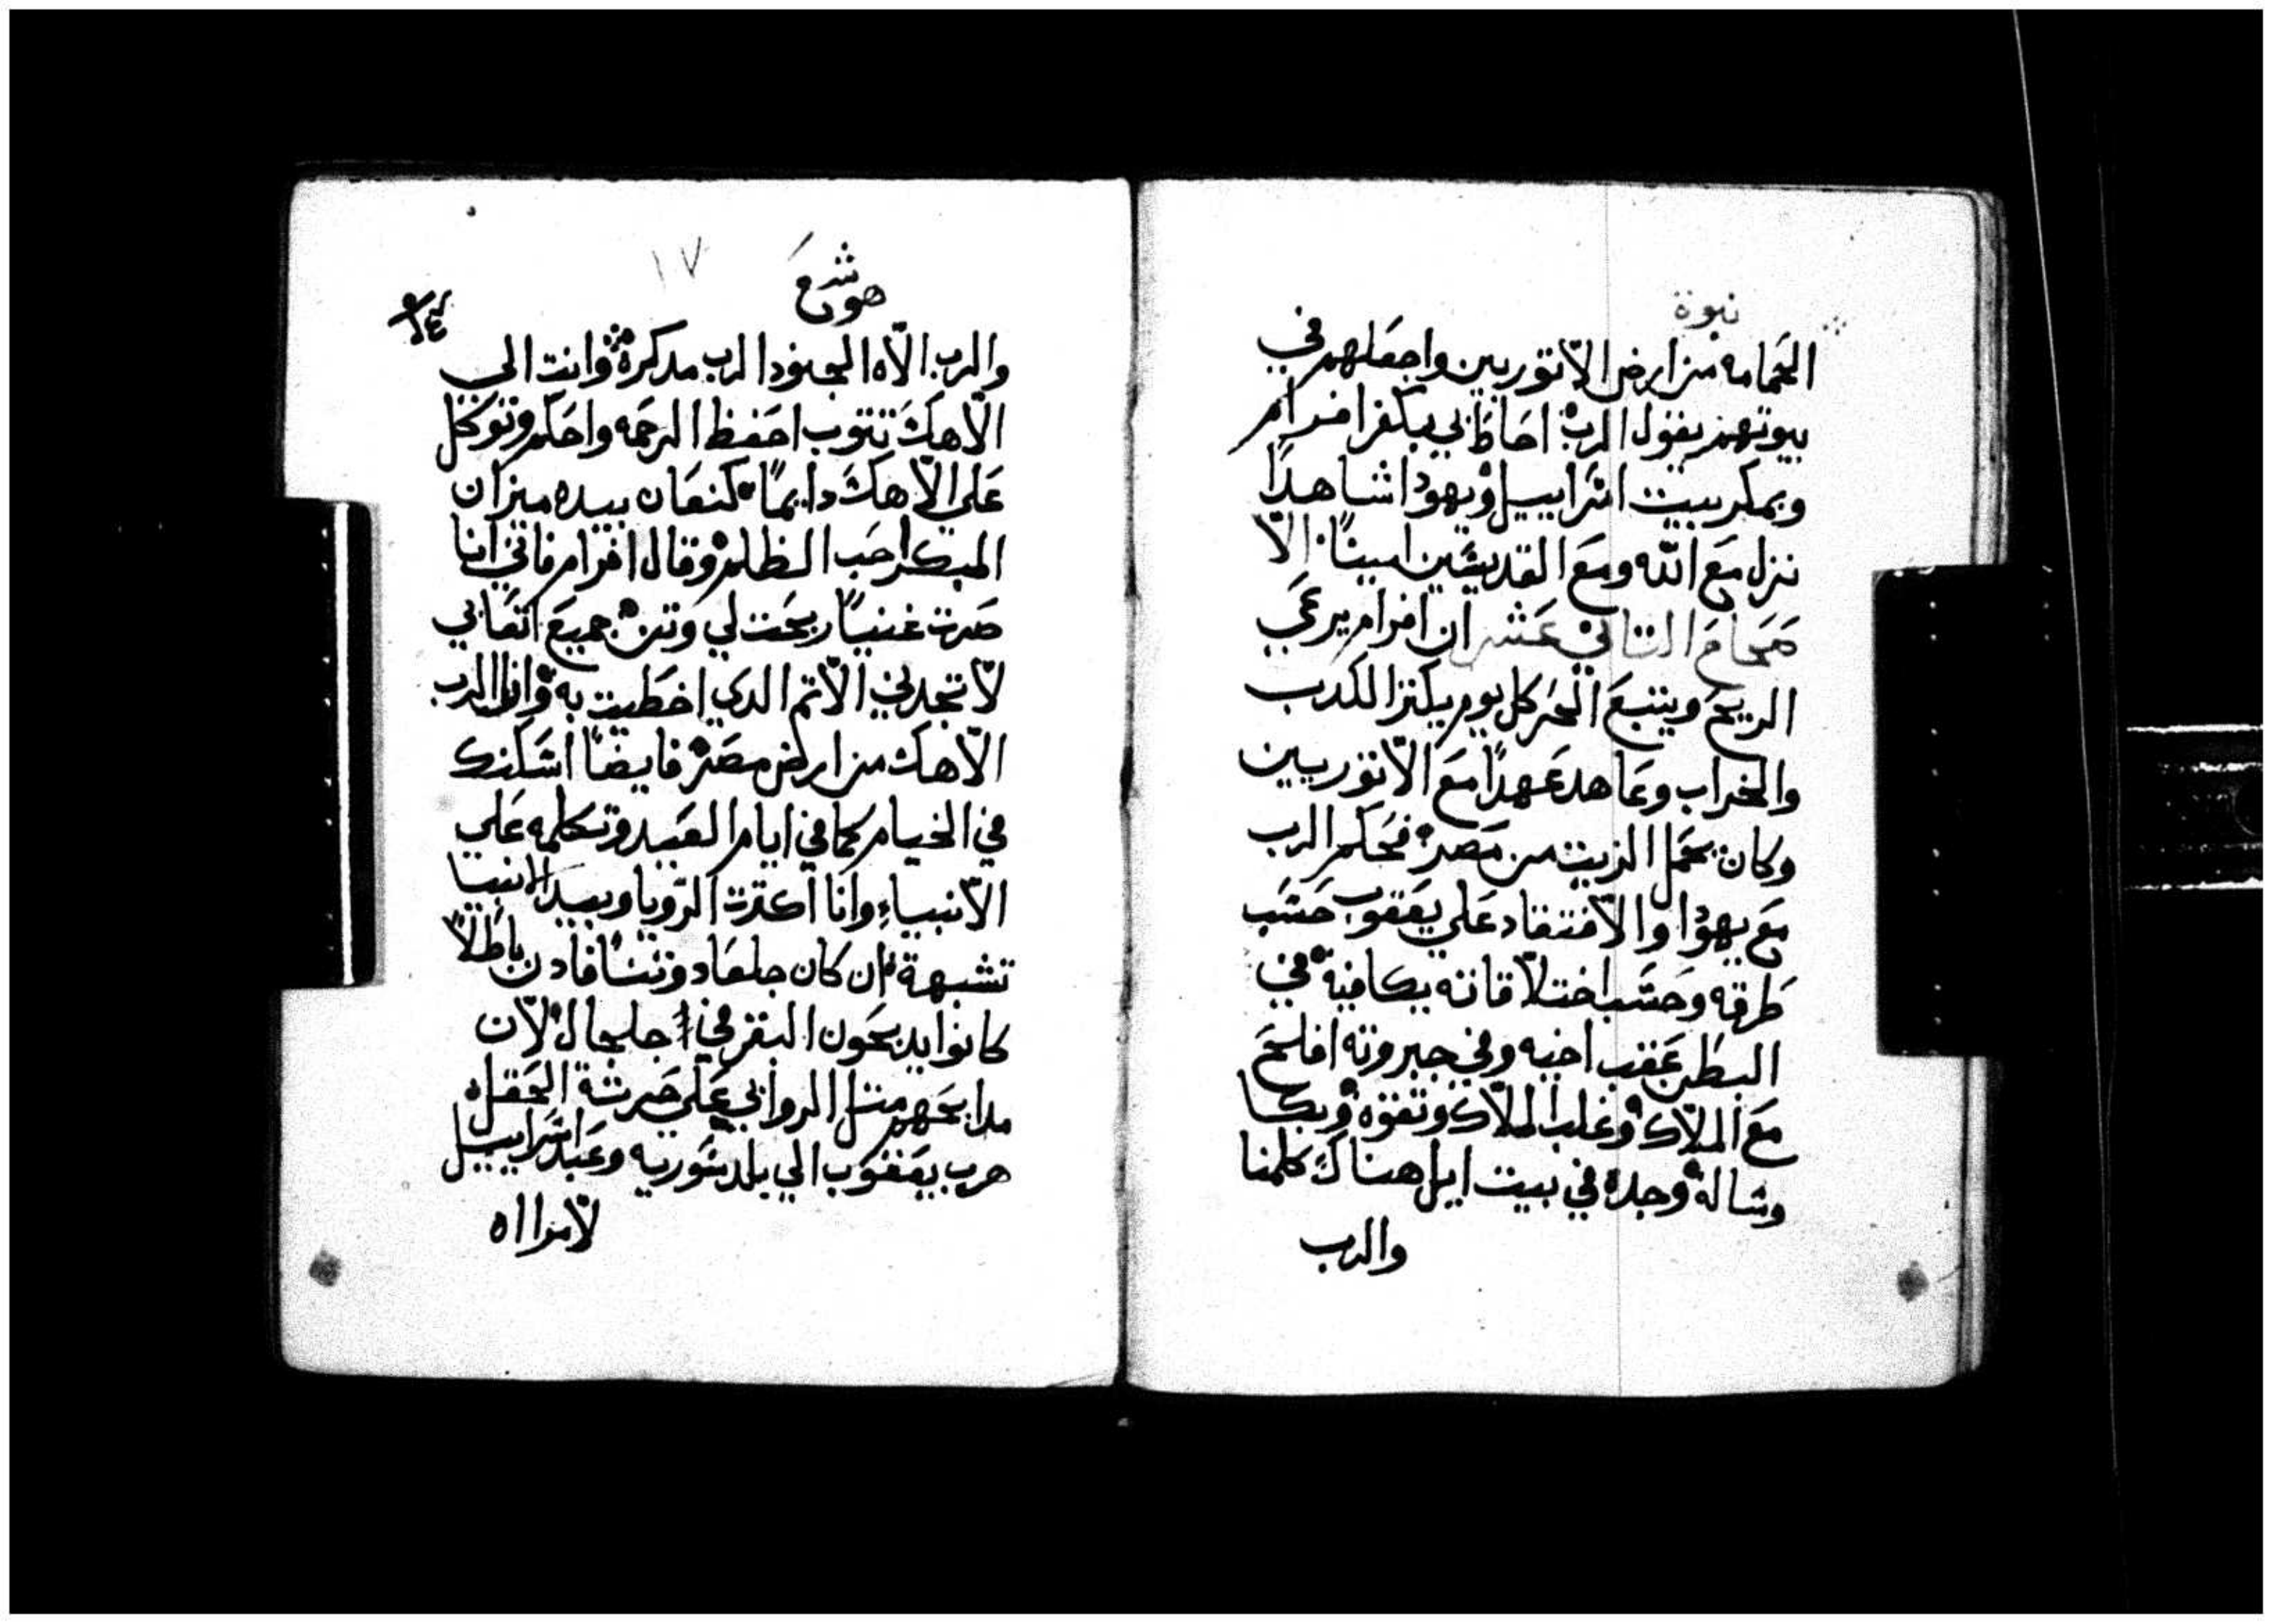 نبوة
الحمامه من ارض الاتوريين واجعلهم في
بيوتهم يقول الرب احاط بي بكفر افرام
وبمكر بيت اسراييل ويهودا شاهدًا
نزل مع الله ومع القديسين امينًا الا
صحاح التاني عشر ان افرام يرعي
الريح ويتبع الحر كل يوم يكتر الكدب
والخراب وعاهد عهدًا مع الاتوريين
وكان يحمل الزيت من مصر فحكم الرب
مع يهودا والافتقاد علي يعقوب حسب
طرقه وحسب اختلاقاته يكافيه في
البطن عقب اخيه وفي جبروته افلح
مع الملاك وغلب الملاك وتقوه وبكا
وساله وجده في بيت ايل هناك كلمنا
والرب
هوشع
١٧
والرب الاه الجنود الرب مدكره وانت الي
الاهك تتوب احفظ الرحمه واحكم وتوكل
علي الاهك دايمًا كنعان بيده ميزان
المبكر احب الظلم وقال افرام فاني انا
صرت غنيًا ربحت لي وتن جميع اتعابي
لا تجدني الاتم الدي اخطيت به وانا الرب
الاهك من ارض مصر فايضًا اسكنك
في الخيام كما في ايام العيد وتكلمه علي
الانبياء وانا اكترت الرويا وبيد الانبيا
تشبهة ان كان جلعاد وتنًا فادن باطلًا
كانوا يدبحون البقر في جلجال لان
مدابحهم متل الروابي علي حرثة الحقل
هرب يعقوب الي بلد سوريه وعبد اسراييل
لامراه